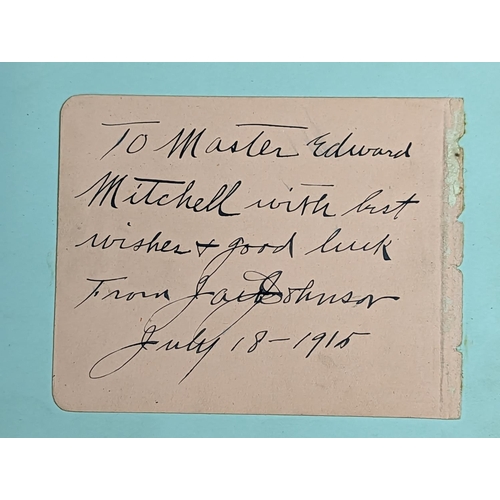 To Master Edward
Mitchell with best
wishes & good luck
From Jack Johnson
July 18 - 1915